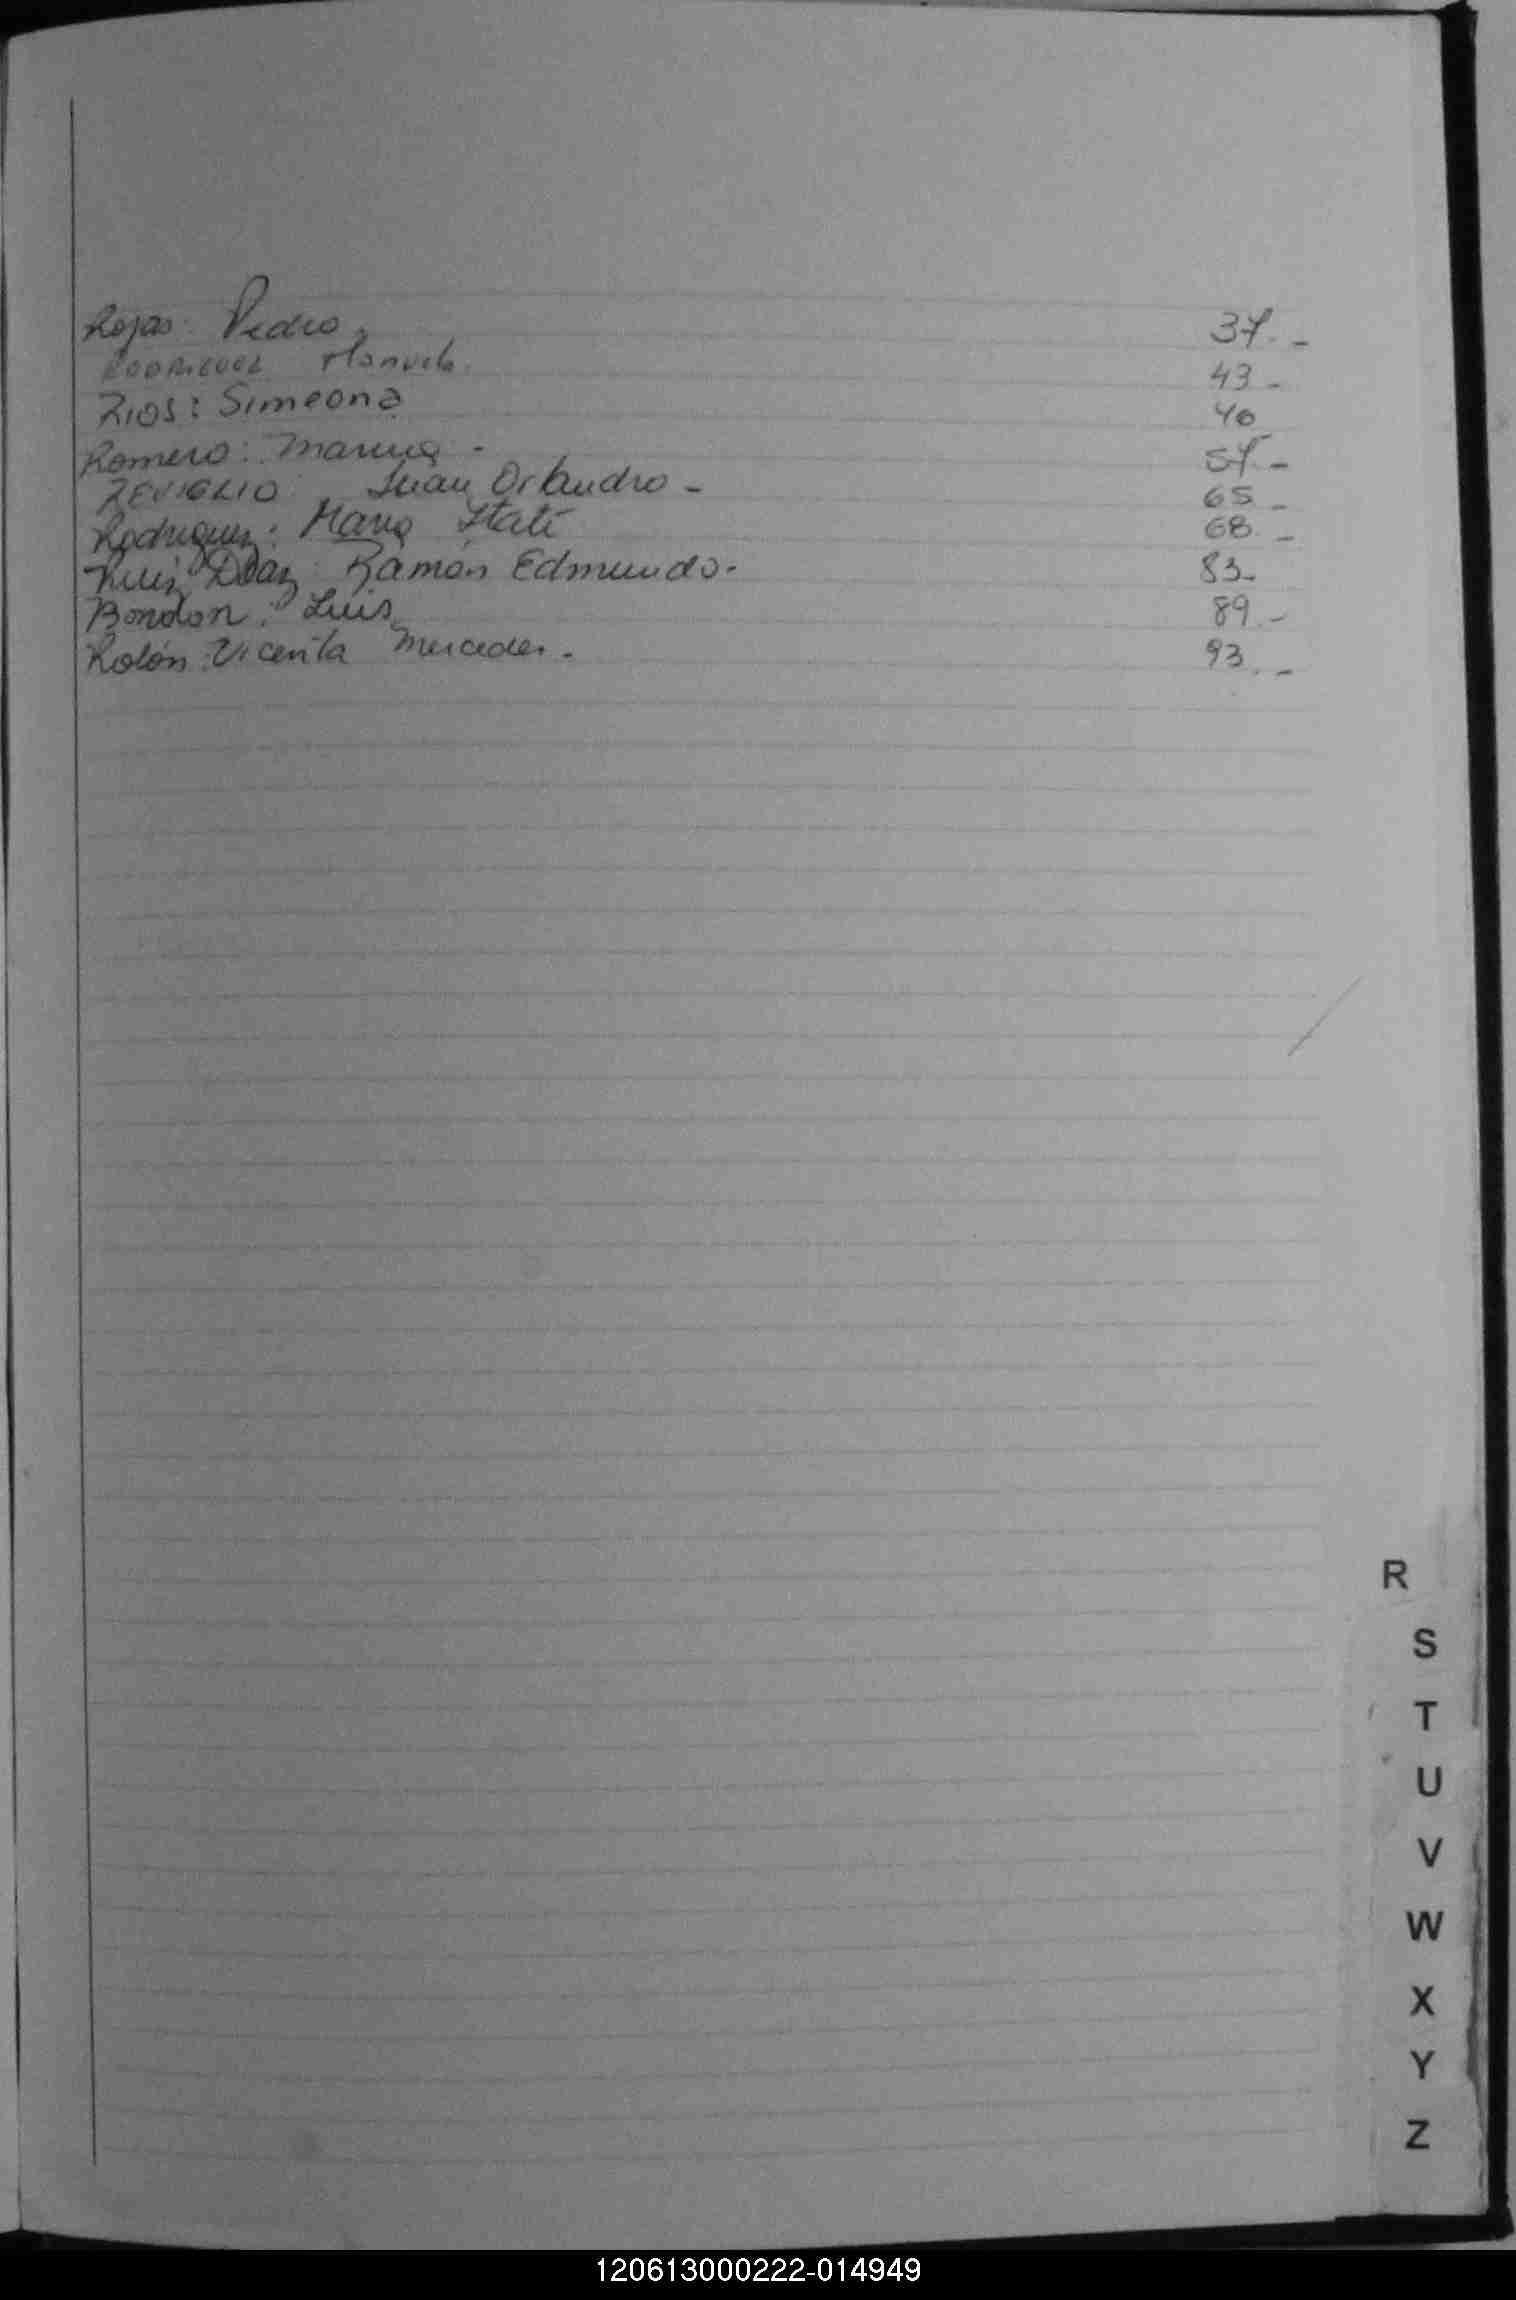 Rojas: Pedro. 37.-
RODRIGUEZ Manuela. 43-
RIOS: Simeona 40
Romero: Marina - 57.-
REVIGLIO: Juan Orlando - 65-
Rodriguez: Maria Itatí 68.-
Ruiz Diaz: Ramón Edmundo. 83-
Bondon: Luis 89.-
Rolón: Vicenta Mercedes.- 93.-
R
S
T
U
V
W
X
Y
Z
120613000222-014949